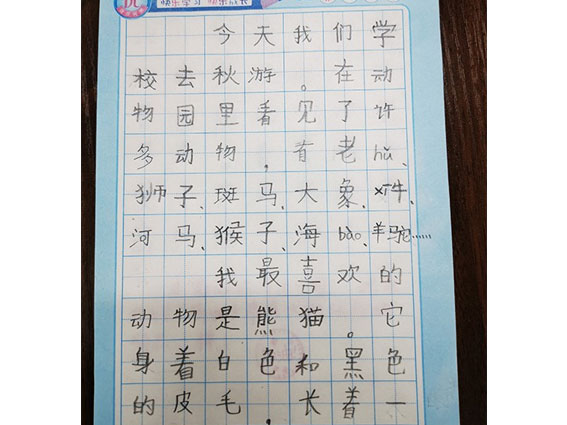 快乐学习 快乐成长
今天我们学
校去秋游。在动
物园里看见了许
多动物，有老hǔ、
狮子、斑马、大象、
河马、猴子、海bào、羊驼……
我最喜欢的
动物是熊猫。它
身着白色和黑色
的皮毛，长着一